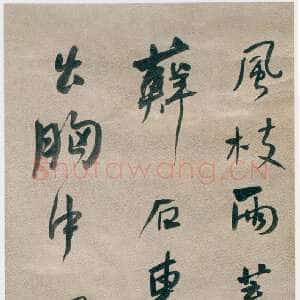 風枝雨葉
蘚石東
出胸中
shufawang.CN